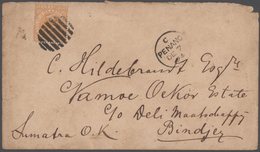 C
PENANG
C. Hildebrandt Esqre
Namoe Oekor Estate
c/o Deli Maatschappij
Sumatra O.K. Bindjei